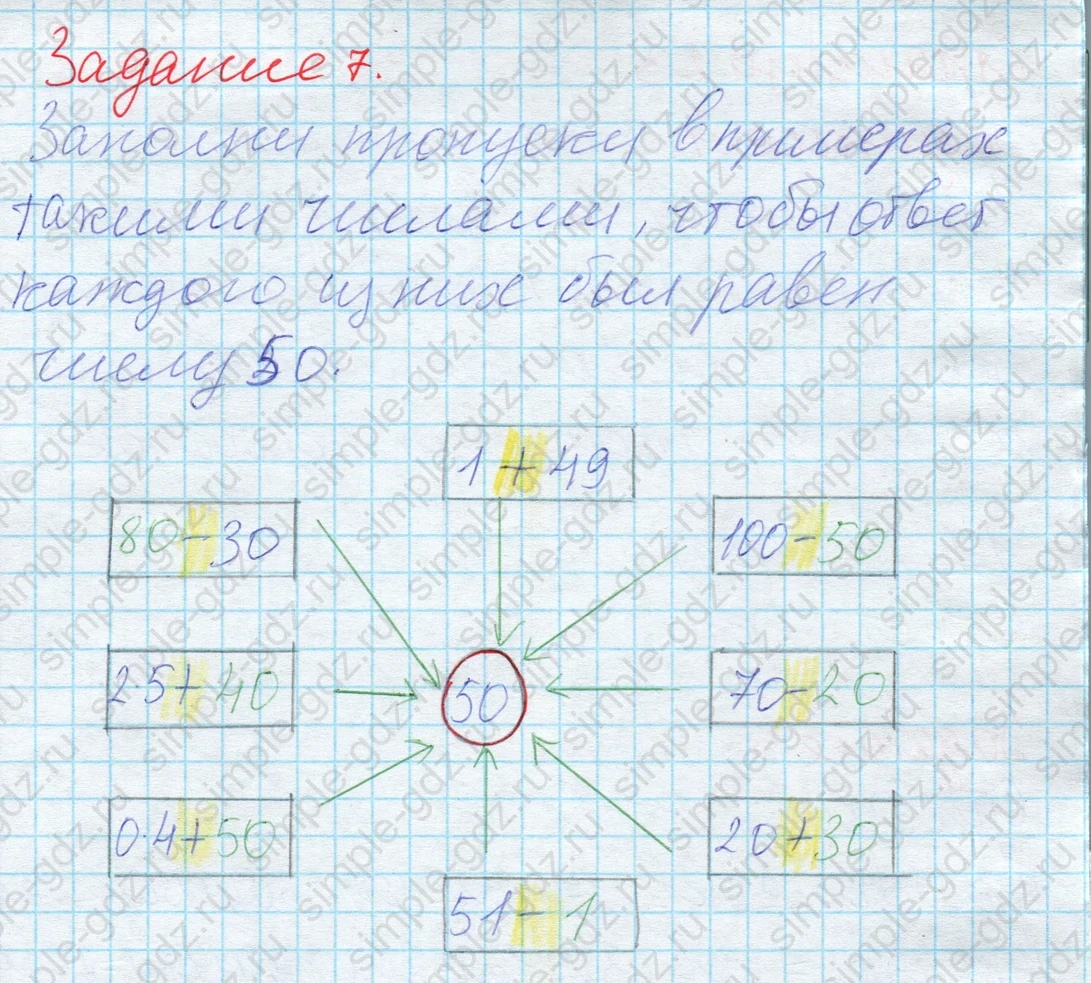 Задание 7.
Заполни пропуски в примерах
такими числами, чтобы ответ
каждого из них был равен
числу 50.
1 + 49
80 - 30
100 - 50
2·5 + 40
50
70 - 20
0·4 + 50
20 + 30
51 - 1
simple-gdz.ru